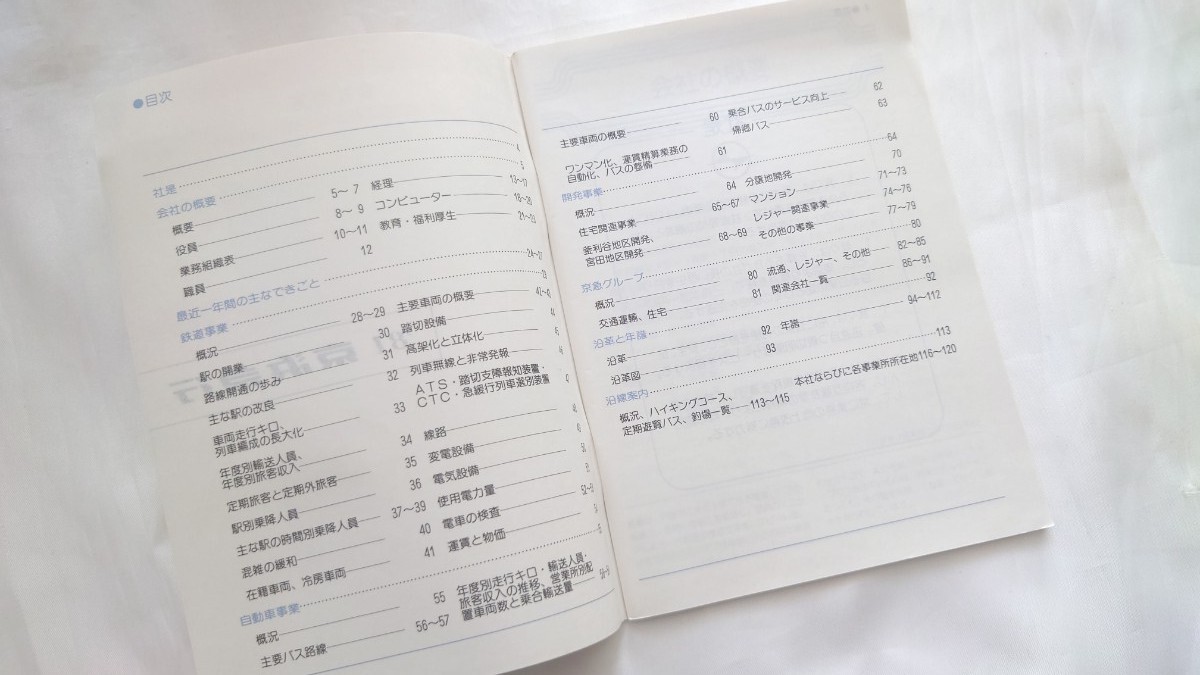 ●目次
社是 4
会社の概要 5
概要 5～7
役員 8～9
業務組織表 10～11
職員 12
経理 13～17
コンピューター
教育・福利厚生
最近一年間の主なできごと
鉄道事業
概況 28～29
駅の開業 30
路線開通の歩み 31
主な駅の改良 32
車両走行キロ、
列車編成の長大化 33
年度別輸送人員、
年度別旅客収入 34
定期旅客と定期外旅客 35
駅別乗降人員 36
主な駅の時間別乗降人員 37～39
混雑の緩和 40
在籍車両、冷房車両 41
主要車両の概要
踏切設備 44
高架化と立体化
列車無線と非常発報
ATS・踏切支障報知装置・
CTC・急緩行列車選別装置
線路
変電設備
電気設備
使用電力量
電車の検査
運賃と物価
自動車事業
概況 55
主要バス路線 56～57
年度別走行キロ・輸送人員・
旅客収入の推移、営業所別配
置車両数と乗合輸送量
主要車両の概要 60
ワンマン化、運賃精算業務の
自動化、バスの整備 61
乗合バスのサービス向上 62
帰郷バス 63
開発事業 64
概況 64
住宅関連事業 65～67
釜利谷地区開発、
宮田地区開発 68～69
分譲地開発 70
マンション 71～73
レジャー関連事業 74～76
その他の事業 77～79
京急グループ 80
概況 80
交通運輸、住宅 81
流通、レジャー、その他 82～85
関連会社一覧 86～91
沿革と年譜 92
沿革 92
沿革図 93
年譜 94～112
沿線案内 113
概況、ハイキングコース、
定期遊覧バス、釣場一覧 113～115
本社ならびに各事業所所在地 116～120